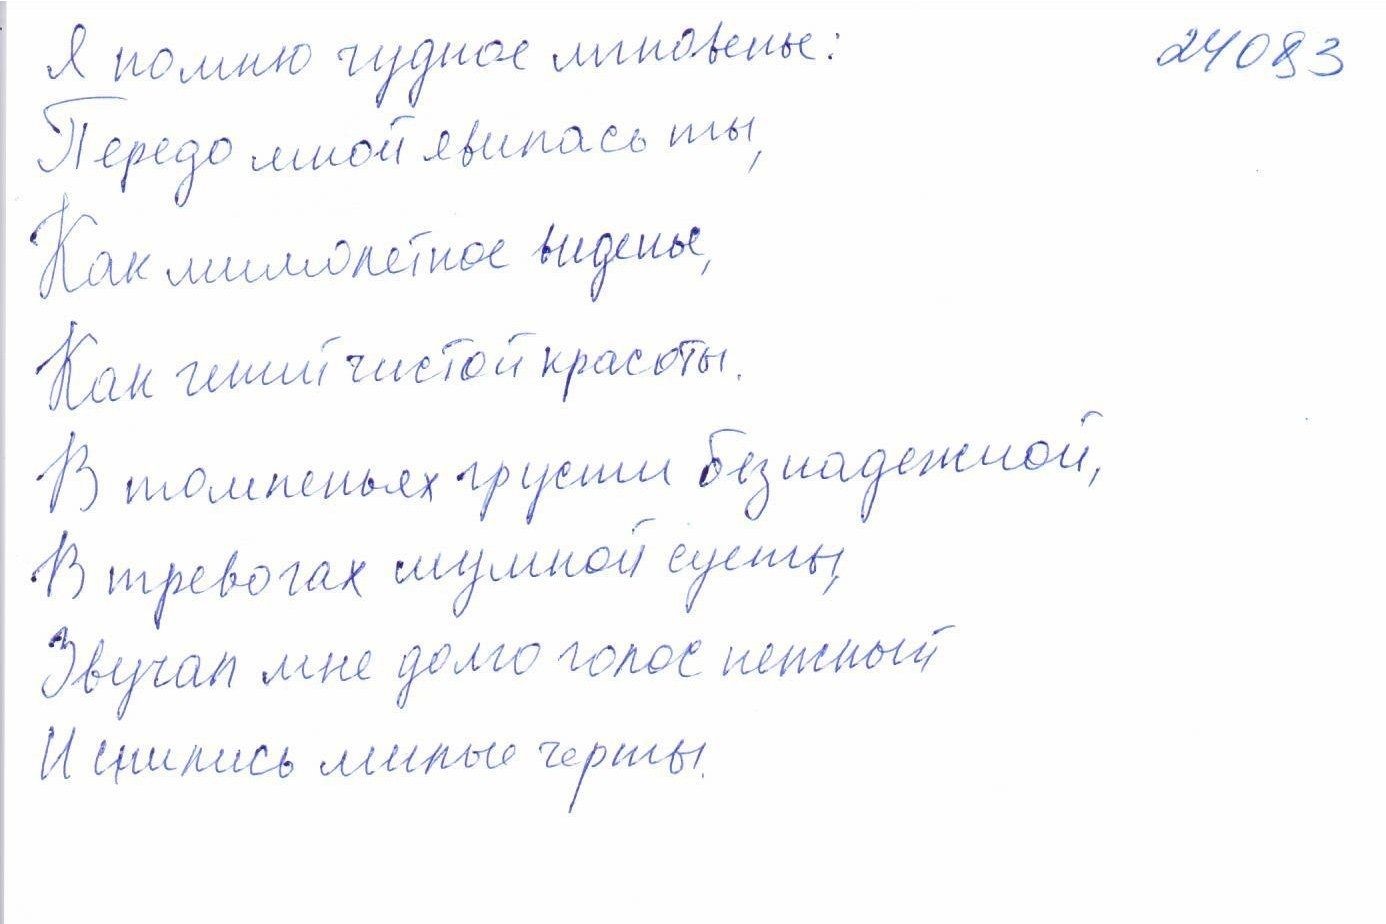 Я помню чудное мгновенье:
24083
Передо мной явилась ты,
Как мимолетное виденье,
Как гений чистой красоты.
В томленьях грусти безнадежной,
В тревогах шумной суеты,
Звучал мне долго голос нежный
И снились милые черты.